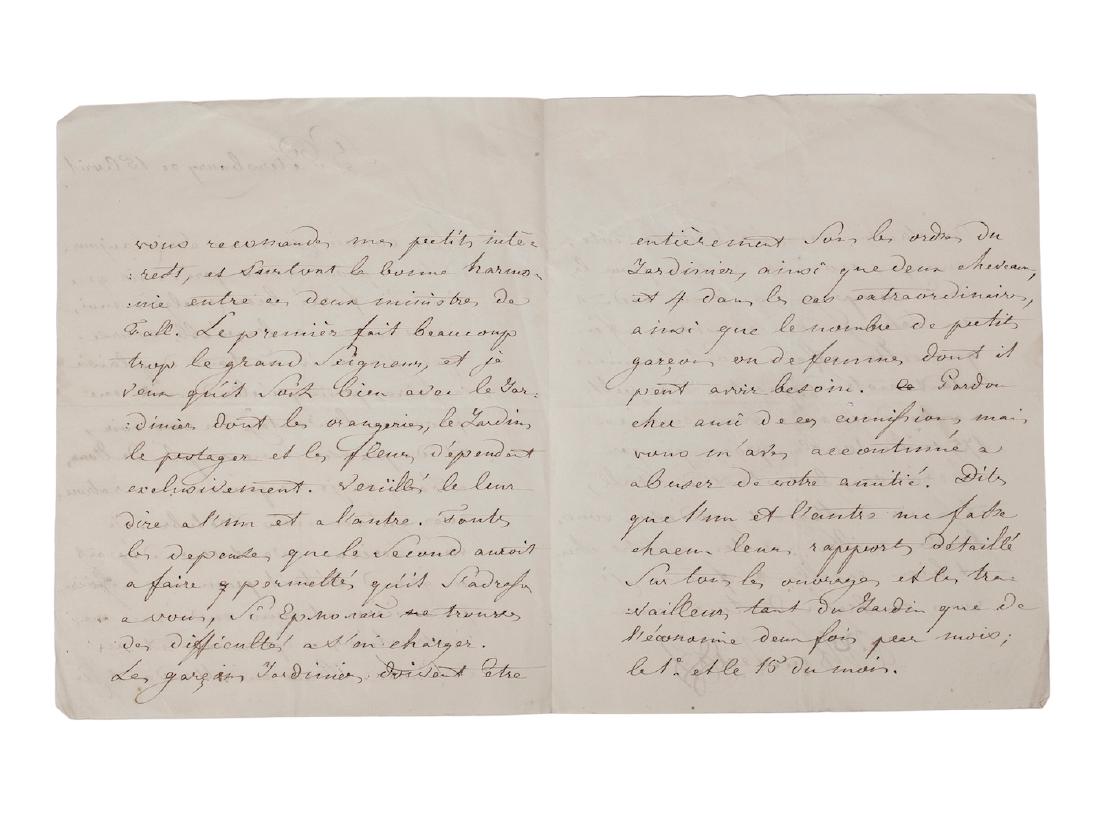 vous recomande mes petits inté-
:rets, et surtout la bonne harmo-
:nie entre ces deux ministres de
Fall. Le premier fait beaucoup
trop le grand Seigneur, et je
veux qu'il soit bien avec le Jar-
:dinier dont les orangeries, le Jardin,
le potager et les fleurs dépendent
exclusivement. Veuillés le leur
dire a l'un et a l'autre. Toute
les depenses que le second auroit
a faire permettés qu'il s'adresse
a vous, si trouve
des difficultés a s'en charger.
Les garçons Jardiniers doivent être
entièrement sous les ordres du
Jardinier, ainsi que deux chevaux,
et 4 dans les cas extraordinaires,
ainsi que le nombre de petits
garçons ou de femmes dont il
peut avoir besoin. Pardon
cher ami de ces comissions, mais
vous m'avés accoutumé a
abuser de votre amitié. Dites
que l'un et l'autre me fasse
chacun leurs rapport détaillé
sur tous les ouvrages et les tra-
:vailleurs, tant du Jardin que de
l'économie deux fois par mois;
le 1º et le 15 du mois.
St Petersbourg ce 15 Avril